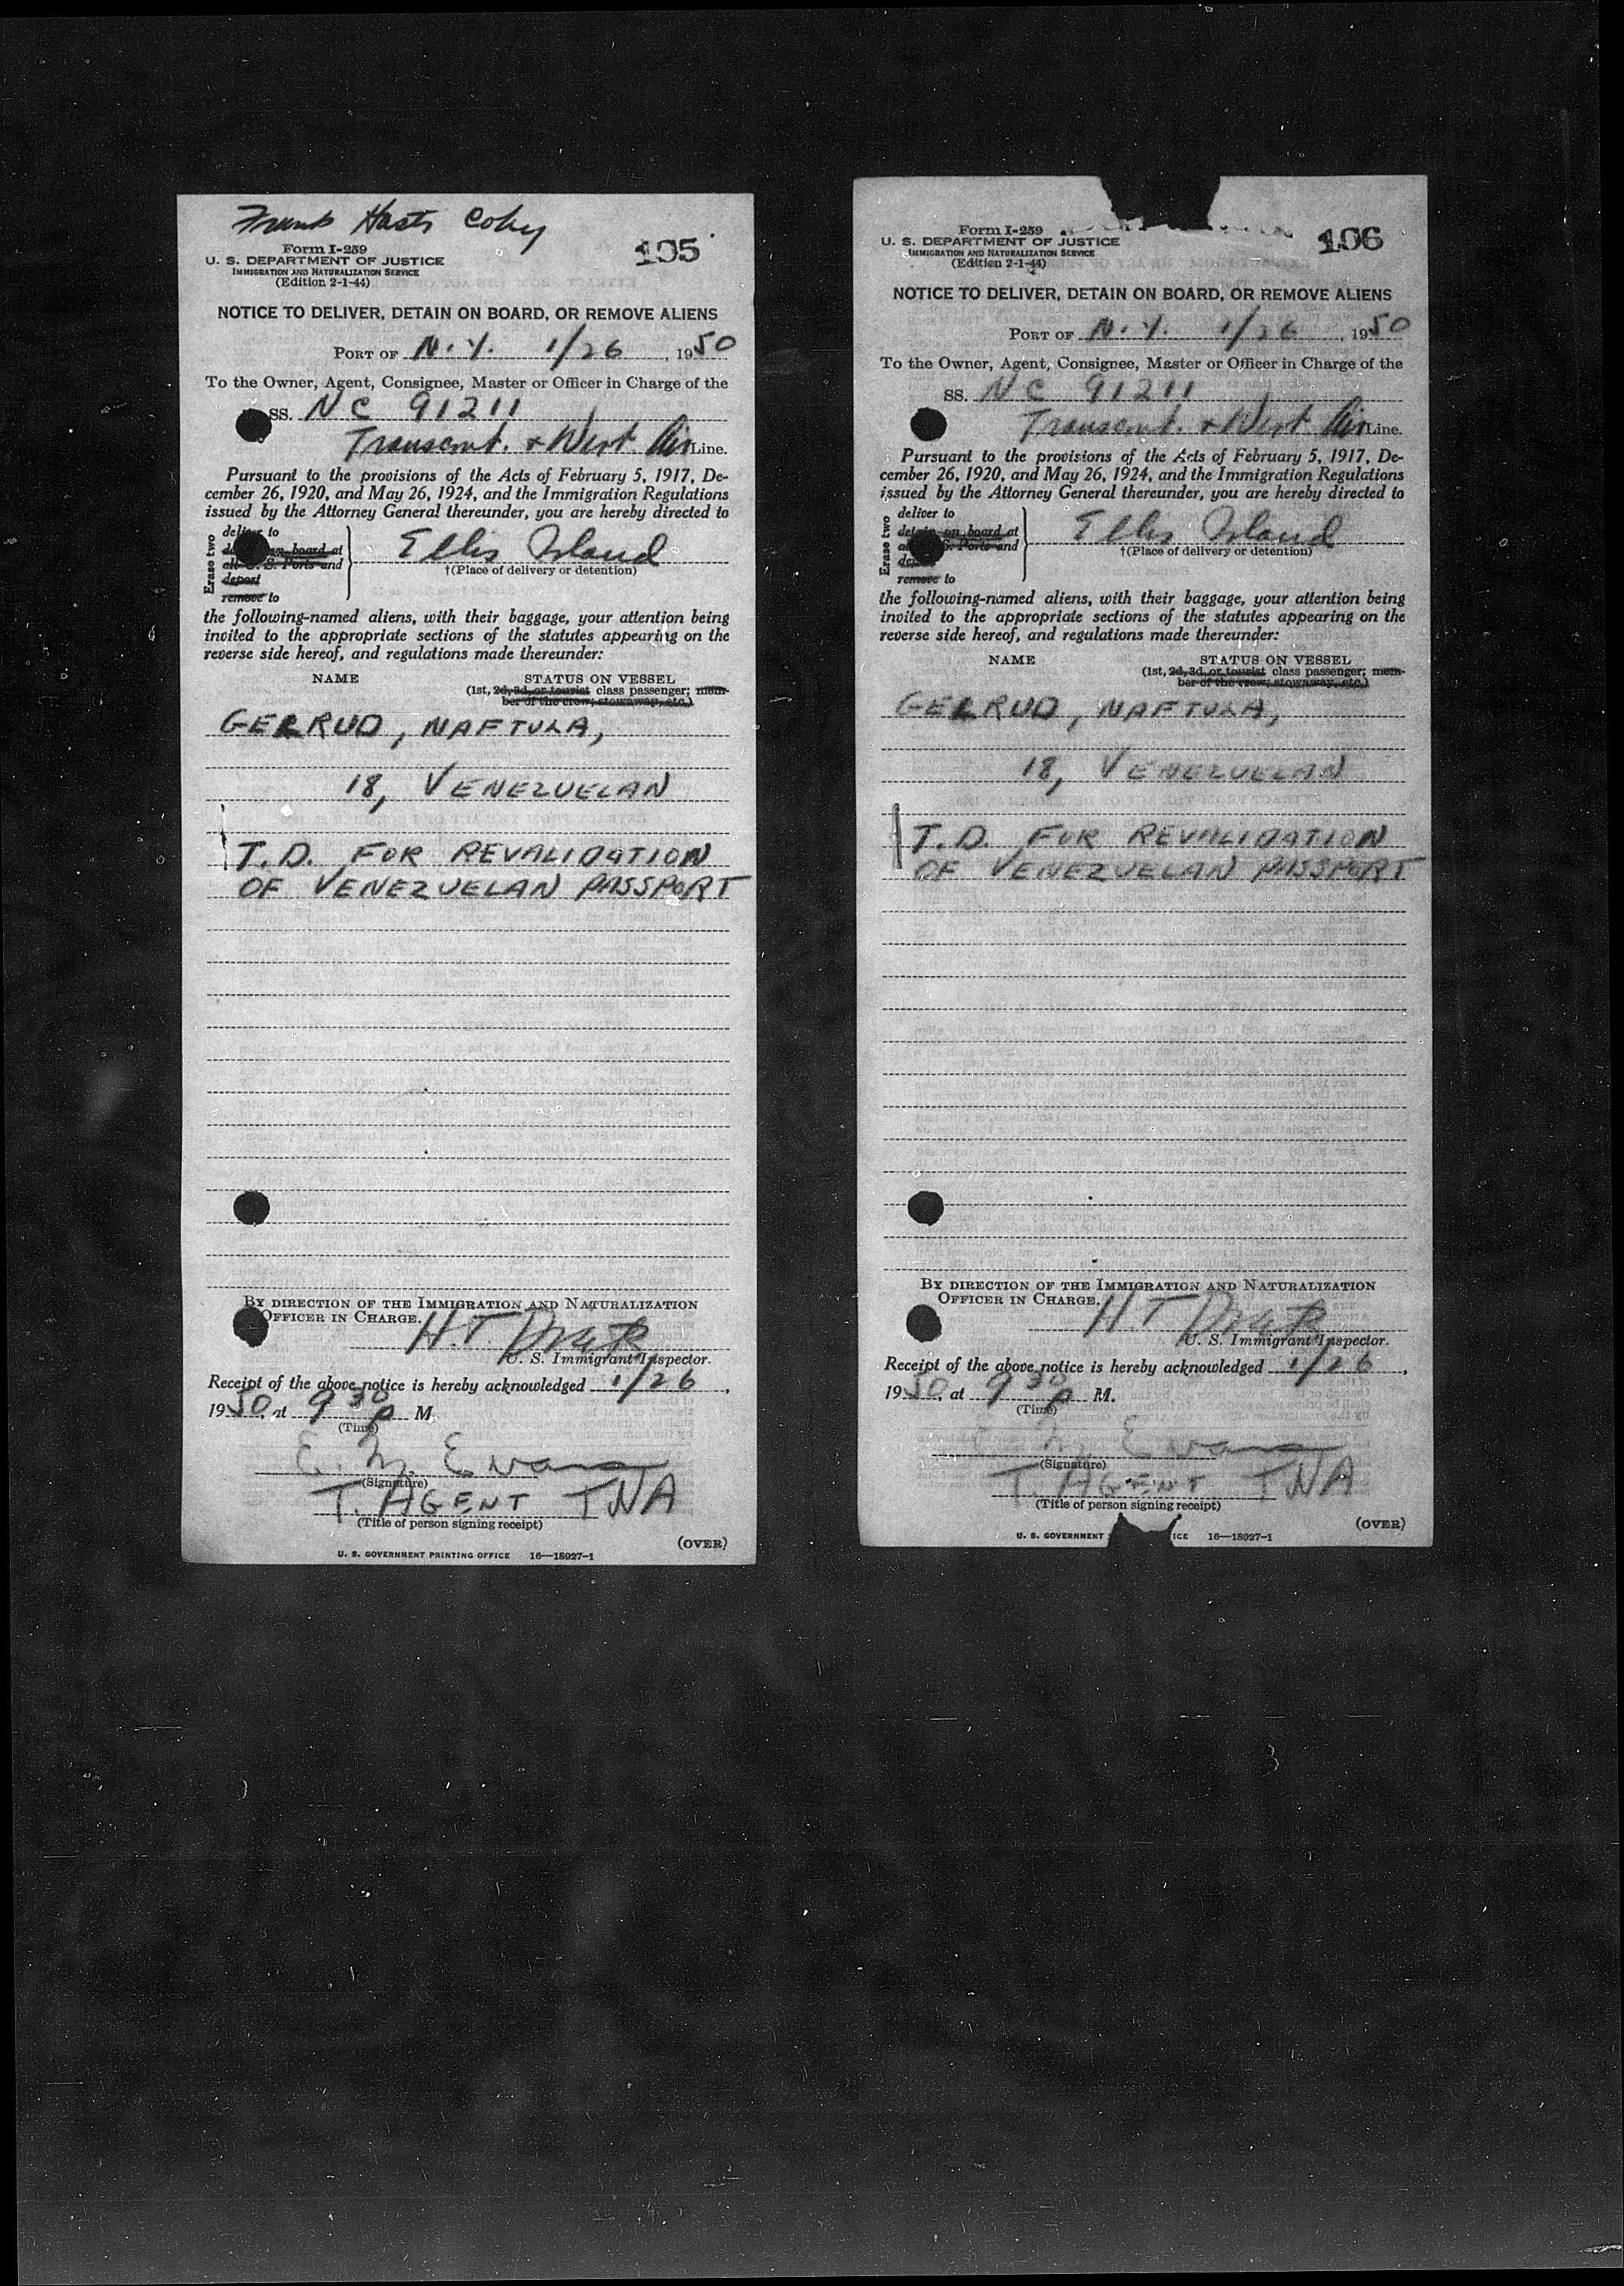 Form I-259
105
U. S. DEPARTMENT OF JUSTICE
IMMIGRATION AND NATURALIZATION SERVICE
(Edition 2-1-44)
NOTICE TO DELIVER, DETAIN ON BOARD, OR REMOVE ALIENS
PORT OF N.Y. 1/26, 1950
To the Owner, Agent, Consignee, Master or Officer in Charge of the
SS. NC 91211
Transcont. & West Air Line.
Pursuant to the provisions of the Acts of February 5, 1917, De-
cember 26, 1920, and May 26, 1924, and the Immigration Regulations
issued by the Attorney General thereunder, you are hereby directed to
Erase two
deliver to
on board at
all U. S. Ports and
deport
remove to
Ellis Island
†(Place of delivery or detention)
the following-named aliens, with their baggage, your attention being
invited to the appropriate sections of the statutes appearing on the
reverse side hereof, and regulations made thereunder:
NAME STATUS ON VESSEL
(1st, 2d, 3d, or tourist class passenger; mem-
ber of the crew; stowaway, etc.)
GELRUD, NAFTULA,
18, VENEZUELAN
T.D. FOR REVALIDATION
OF VENEZUELAN PASSPORT
BY DIRECTION OF THE IMMIGRATION AND NATURALIZATION
OFFICER IN CHARGE.
H.T.
U. S. Immigrant Inspector.
Receipt of the above notice is hereby acknowledged 1/26,
1950, at 9 30 P M
(Time)
E. M. Evans
(Signature)
T. AGENT TWA
(Title of person signing receipt)
(OVER)
U. S. GOVERNMENT PRINTING OFFICE 16—18927-1
Form I-259
106
U. S. DEPARTMENT OF JUSTICE
IMMIGRATION AND NATURALIZATION SERVICE
(Edition 2-1-44)
NOTICE TO DELIVER, DETAIN ON BOARD, OR REMOVE ALIENS
PORT OF N.Y. 1/26, 1950
To the Owner, Agent, Consignee, Master or Officer in Charge of the
SS. NC 91211
Transcont. & West Air Line.
Pursuant to the provisions of the Acts of February 5, 1917, De-
cember 26, 1920, and May 26, 1924, and the Immigration Regulations
issued by the Attorney General thereunder, you are hereby directed to
Erase two
deliver to
detain on board at
S. Ports and
remove to
Ellis Island
†(Place of delivery or detention)
the following-named aliens, with their baggage, your attention being
invited to the appropriate sections of the statutes appearing on the
reverse side hereof, and regulations made thereunder:
NAME STATUS ON VESSEL
(1st, 2d, 3d, or tourist class passenger; mem-
ber of the crew; stowaway, etc.)
GELRUD, NAFTULA,
18, VENEZUELAN
T.D. FOR REVALIDATION
OF VENEZUELAN PASSPORT
BY DIRECTION OF THE IMMIGRATION AND NATURALIZATION
OFFICER IN CHARGE.
H.T.
U. S. Immigrant Inspector.
Receipt of the above notice is hereby acknowledged 1/26,
1950, at 9 30 P M.
(Time)
Evans
(Signature)
T. AGENT TWA
(Title of person signing receipt)
(OVER)
U. S. GOVERNMENT ICE 16—18927-1